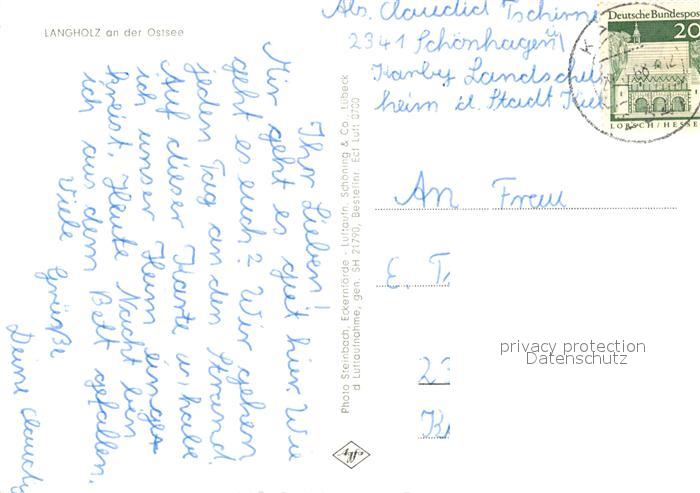 LANGHOLZ an der Ostsee
Ihr Lieben!
Mir geht es gut hier. Wie
geht es euch? Wir gehen
jeden Tag an den Strand.
Auf dieser Karte
ich unser Heim einge-
kreist. Heute Nacht bin
ich aus dem Bett gefallen.
Viele Grüße
Deine Claudia
Photo Steinbach, Eckernförde - Luftaufn. Schöning & Co., Lübeck
d Luftaufnahme, gen. SH 21790, Bestellnr. Ecf Luft 0700
Abs. Claudia Tschirne
2341 Schönhagen
Karby Landschul
heim d. Stadt Kiel
Deutsche Bundespost
20
LORSCH/HESSEN
An Frau
E. T
23
K
privacy protection
Datenschutz